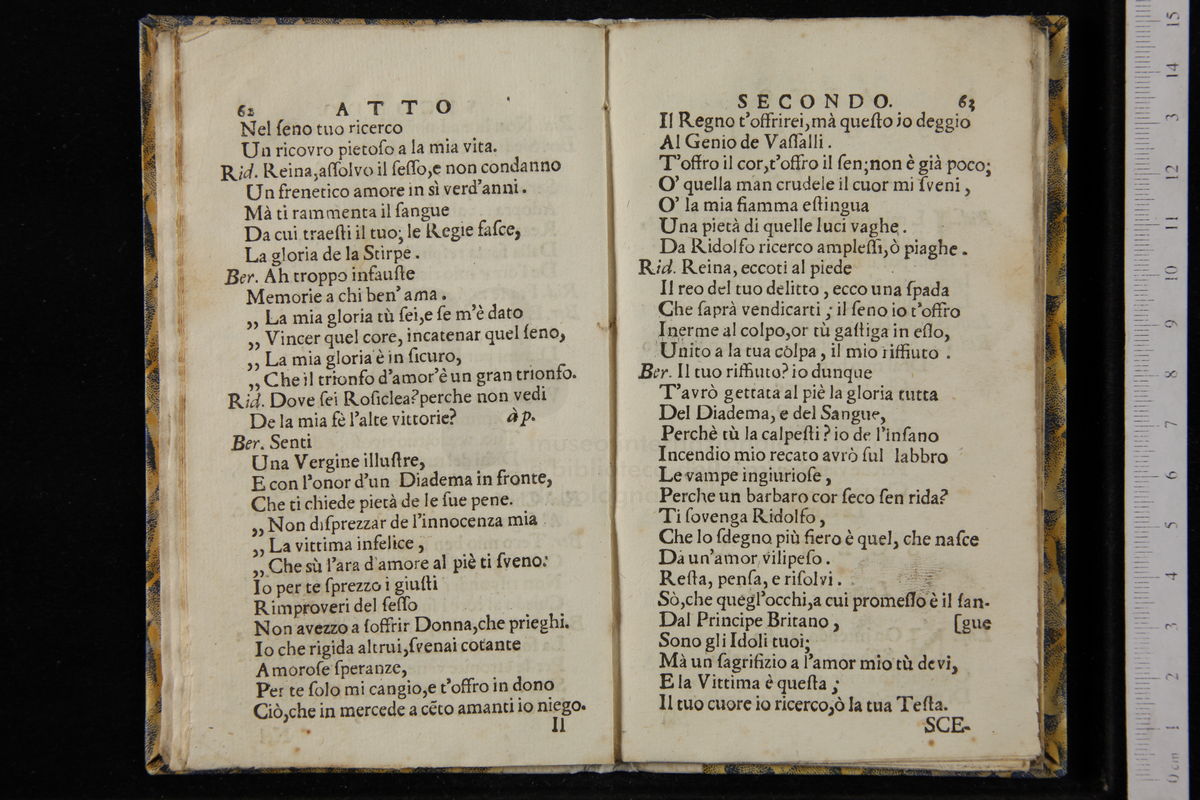 62 ATTO
Nel ſeno tuo ricerco
Un ricovro pietoſo a la mia vita.
Rid. Reina,aſſolvo il ſeſſo,e non condanno
Un frenetico amore in sì verd'anni.
Mà ti rammenta il ſangue
Da cui traeſti il tuo; le Regie faſce,
La gloria de la Stirpe.
Ber. Ah troppo infauſte
Memorie a chi ben' ama.
„ La mia gloria tù ſei,e ſe m'è dato
„ Vincer quel core, incatenar quel ſeno,
„ La mia gloria è in ſicuro,
„ Che il trionfo d'amor'è un gran trionfo.
Rid. Dove ſei Roſiclea?perche non vedi
De la mia fè l'alte vittorie? à p.
Ber. Senti
Una Vergine illuſtre,
E con l'onor d'un Diadema in fronte,
Che ti chiede pietà de le ſue pene.
„ Non diſprezzar de l'innocenza mia
„ La vittima infelice,
„ Che sù l'ara d'amore al piè ti ſveno:
Io per te ſprezzo i giuſti
Rimproveri del ſeſſo
Non avezzo a ſoffrir Donna,che prieghi.
Io che rigida altrui,ſvenai cotante
Amoroſe ſperanze,
Per te ſolo mi cangio,e t'offro in dono
Ciò,che in mercede a cẽto amanti io niego.
Il
SECONDO. 63
Il Regno t'offrirei,mà queſto io deggio
Al Genio de Vaſſalli.
T'offro il cor,t'offro il ſen;non è già poco;
O' quella man crudele il cuor mi ſveni,
O' la mia fiamma eſtingua
Una pietà di quelle luci vaghe.
Da Ridolfo ricerco ampleſſi,ò piaghe.
Rid. Reina, eccoti al piede
Il reo del tuo delitto, ecco una ſpada
Che ſaprà vendicarti; il ſeno io t'offro
Inerme al colpo,or tù gaſtiga in eſſo,
Unito a la tua còlpa, il mio riffiuto.
Ber. Il tuo riffiuto? io dunque
T'avrò gettata al piè la gloria tutta
Del Diadema, e del Sangue,
Perchè tù la calpeſti? io de l'inſano
Incendio mio recato avrò ſul labbro
Le vampe ingiurioſe,
Perche un barbaro cor ſeco ſen rida?
Ti ſovenga Ridolfo,
Che lo ſdegno più fiero è quel, che naſce
Da un'amor vilipeſo.
Reſta, penſa, e riſolvi.
Sò,che quegl'occhi,a cui promeſſo è il ſan-
Dal Principe Britano, [gue
Sono gli Idoli tuoi;
Mà un ſagrifizio a l'amor mio tù devi,
E la Vittima è queſta;
Il tuo cuore io ricerco,ò la tua Teſta.
SCE-